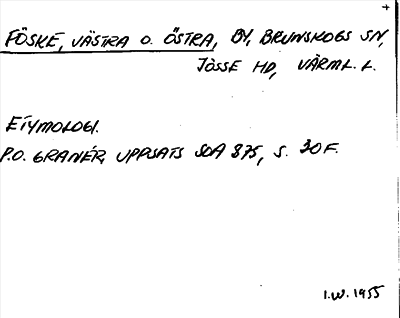 FÖSKE, VÄSTRA O. ÖSTRA, BY, BRUNSKOGS SN,
JÖSSE HD, VÄRML. L.
ETYMOLOGI.
P.O. GRANÉR, UPPSATS SOA 875, S. 30 F.
I.W. 1955